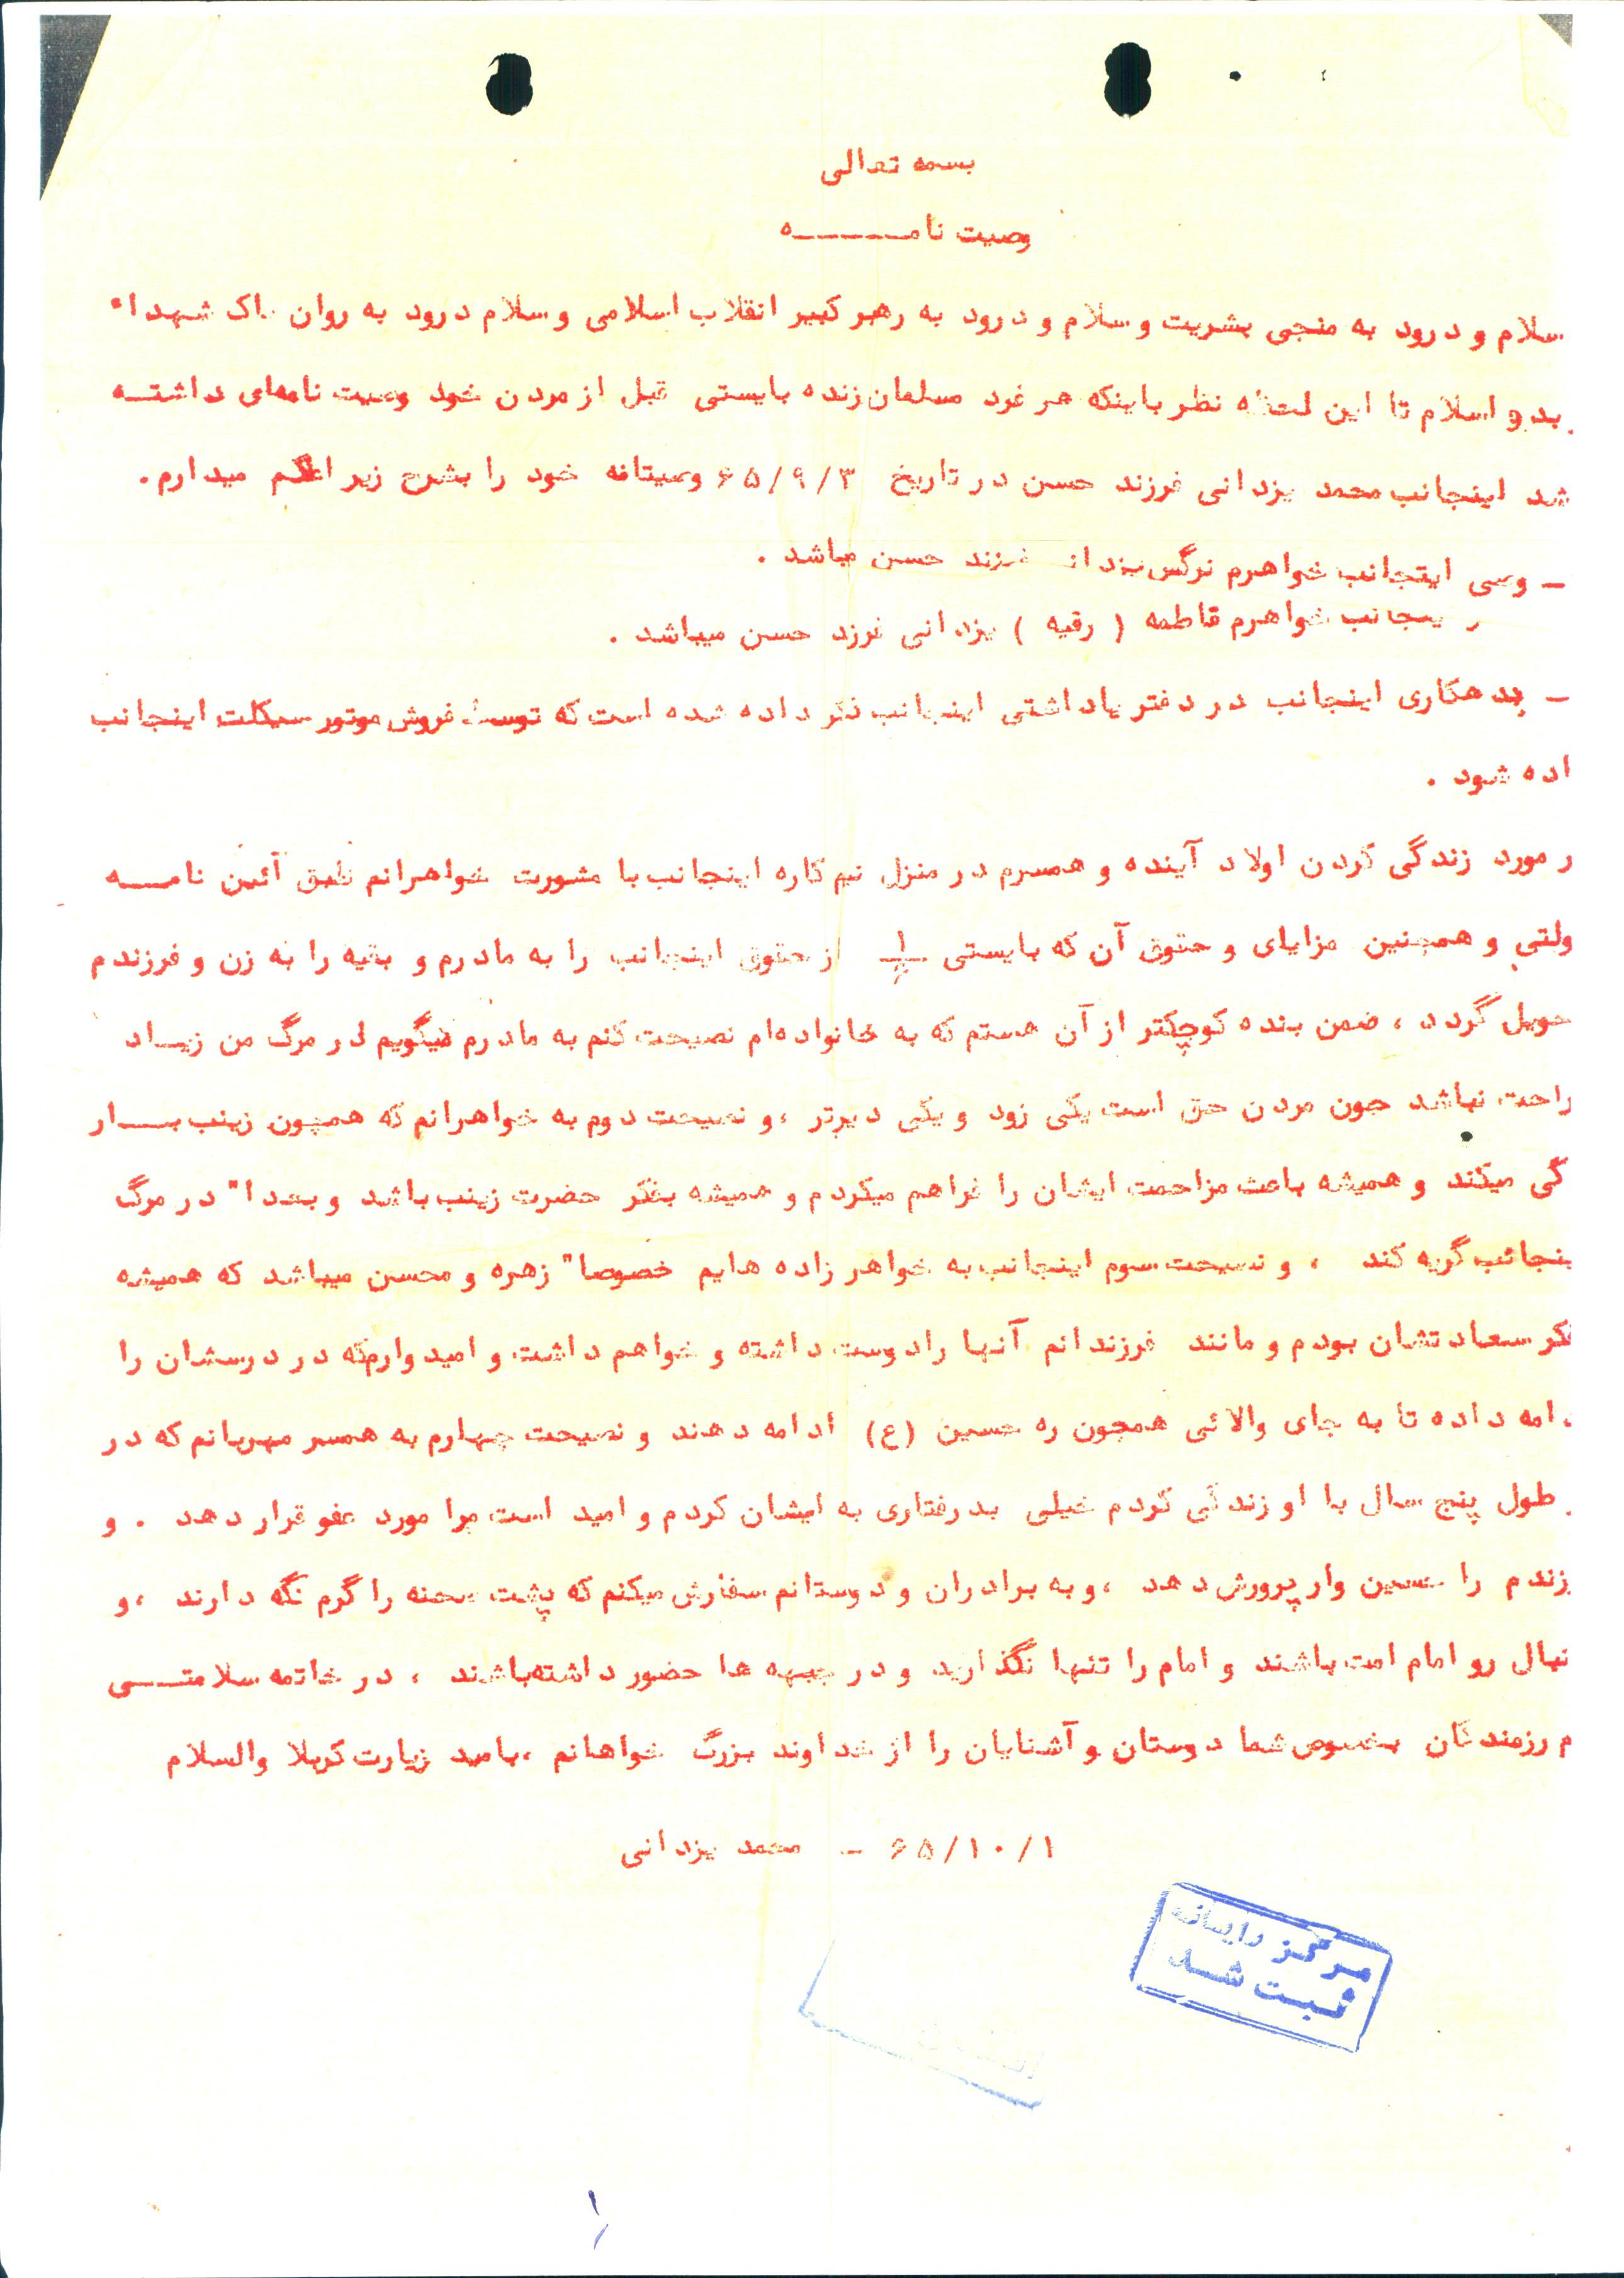 بسمه تعالی
وصیت نامــــــه
سلام و درود به منجی بشریت و سلام و درود به رهبر کبیر انقلاب اسلامی و سلام درود به روان پاک شهداء
بدو اسلام تا این لحظه نظر باینکه هر فرد مسلمان زنده بایستی قبل از مردن خود وصیت نامه‌ای داشتــه
شد اینجانب محمد یزدانی فرزند حسن در تاریخ ۶۵/۹/۳ وصیتنامه خود را بشرح زیر اعلام میدارم.
– وصی اینجانب خواهرم نرگس یزدانی فرزند حسن میاشد .
ر ینجانب خواهرم فاطمه ( رقیه ) یزدانی فرزند حسن میباشد .
– بدهکاری اینجانب در دفتر یاداشتی اینجانب ذکر داده شده است که توسط فروش موتور سیکلت اینجانب
اده شود .
ر مورد زندگی کردن اولاد آینده و همسرم در منزل نیم کاره اینجانب با مشورت خواهرانم طبق آئین نامـــه
ولتی و همچنین مزایای و حقوق آن که بایستی از حقوق اینجانب را به مادرم و بقیه را به زن و فرزندم
حویل گردد ، ضمن بنده کوچکتر از آن هستم که به خانواده‌ام نصیحت کنم به مادرم میگویم در مرگ من زیــاد
راحت نباشد چون مردن حق است یکی زود و یکی دیرتر ،و نصیحت دوم به خواهرانم که همچون زینب بـــار
گی میکند و همیشه باعث مزاحمت ایشان را فراهم میکردم و همیشه بفکر حضرت زینب باشد و بعدا" در مرگ
ینجانب گریه کند ، و نصیحت سوم اینجانب به خواهر زاده هایم خصوصا" زهره و محسن میباشد که همیشه
فکر سعادتشان بودم و مانند فرزندانم آنها را دوست داشته و خواهم داشت و امیدوارم که در درسشان را
دامه داده تا به جای والائی همچون ره حسین (ع) ادامه دهند و نصیحت چهارم به همسر مهربانم که در
طول پنج سال با او زندگی کردم خیلی بدرفتاری به ایشان کردم و امید است مرا مورد عفو قرار دهد . و
رزندم را حسین وار پرورش دهد ،و به برادران و دوستانم سفارش میکنم که پشت صحنه را گرم نگه دارند ،و
نبال رو امام امت باشند و امام را تنها نگذارید و در جبهه ها حضور داشته باشند ، در خاتمه سلامتـــی
م رزمندگان بخصوص شما دوستان و آشنایان را از خداوند بزرگ خواهانم ،بامید زیارت کربلا والسلام
۶۵/۱۰/۱ – محمد یزدانی
مرکز رایانه
ثبت شد